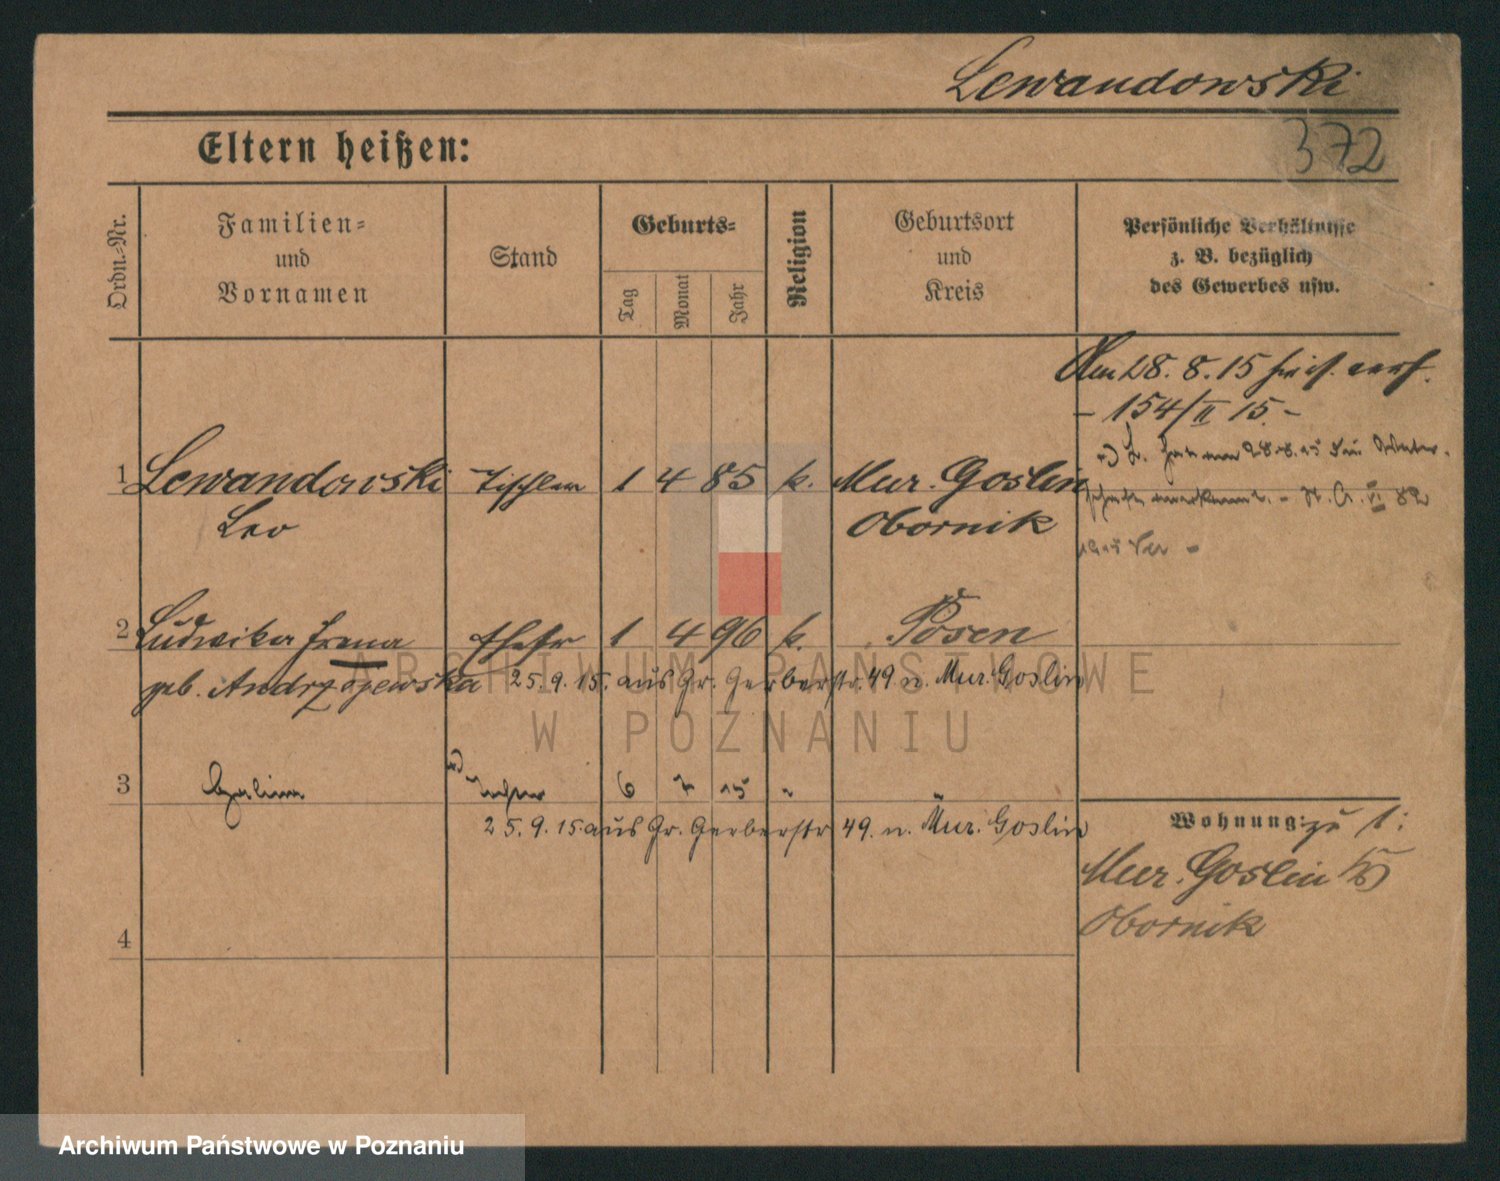 Lewandowski
372
Eltern heißen:
Ordn.-Nr.
Familien- und Vornamen
Stand
Geburts-
Tag
Monat
Jahr
Religion
Geburtsort und Kreis
Persönliche Verhältnisse
z. B. bezüglich
des Gewerbes usw.
Am 28. 8. 15
- 154/II 15 -
1 Lewandowski Tischler 1 4 85 k. Mur. Goslin
Leo Obornik
2 Ludwika Irena Ehefr 1 4 96 k. Posen
geb. Andrzojewska 25. 9. 15. aus Gr. Gerberstr. 49 n. Mur. Goslin
3 6 7 15 "
25. 9. 15 aus Gr. Gerberstr 49. n. Mur. Goslin
Wohnung: zu 1:
Mur. Goslin
Obornik
4
ARCHIWUM PAŃSTWOWE
W POZNANIU
Archiwum Państwowe w Poznaniu